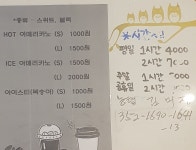 HOT 아메리카노 (S) 1000원
(L) 1500원
ICE 아메리카노 (S) 1500원
(L) 2000원
아이스티(복숭아) (S) 1000원
(L) 1500원
평일 1시간 4000
2시간 7000
주말 1시간 5000
공휴일 2시간
농협
352-1690-1644
-13